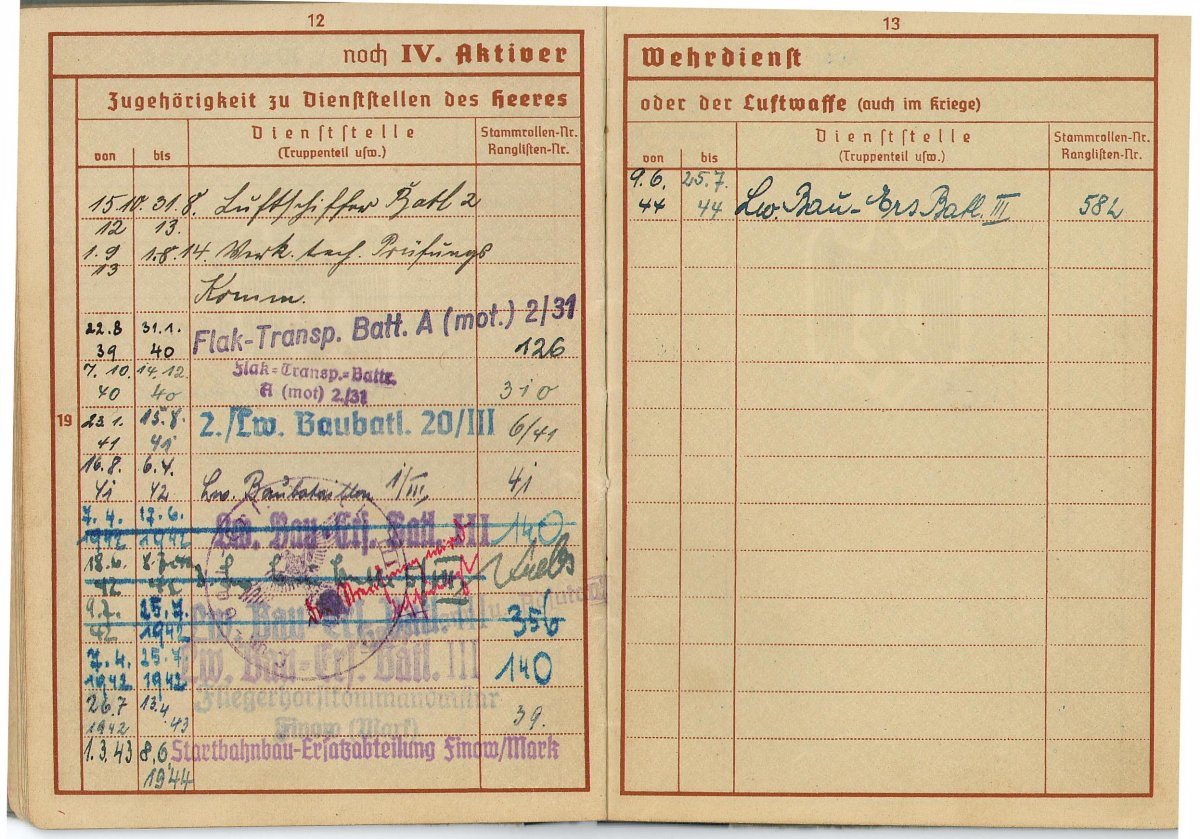 12
noch IV. Aktiver
Zugehörigkeit zu Dienststellen des Heeres
von
bis
Dienststelle
(Truppenteil usw.)
Stammrollen-Nr.
Ranglisten-Nr.
15.10. 31.8. Luftschiffer Batl 2
12 13.
1.9 1.8.14. Werk. tech. Prüfungs
13
Komm.
22.8 31.1. Flak-Transp. Batt. A (mot.) 2/31
39 40 126
7.10. 14.12. Flak-Transp.-Battr.
40 40 A (mot) 2/31 310
19
23.1. 15.8. 2./Lw. Baubatl. 20/III 6/41
41 41
16.8. 6.4.
41 42 Lw. Baubataillon 1/III 41
7.4. 17.6. Lw. Bau-Ers. Batl. III 140
1942 1942
18.6. 8.7.
42 42
9.7. 25.7. Lw. Bau-Ers. Batl. III 356
42 1942
7.4. 25.7 Lw. Bau-Ers. Batl. III 140
1942 1942
26.7 13.4. Fliegerhorstkommandantur
1942 43 Finow (Mark) 39.
1.3.43 8.6. Startbahnbau-Ersatzabteilung Finow/Mark
1944
13
Wehrdienst
oder der Luftwaffe (auch im Kriege)
von
bis
Dienststelle
(Truppenteil usw.)
Stammrollen-Nr.
Ranglisten-Nr.
9.6. 25.7.
44 44 Lw. Bau-Ers Batl. III 582